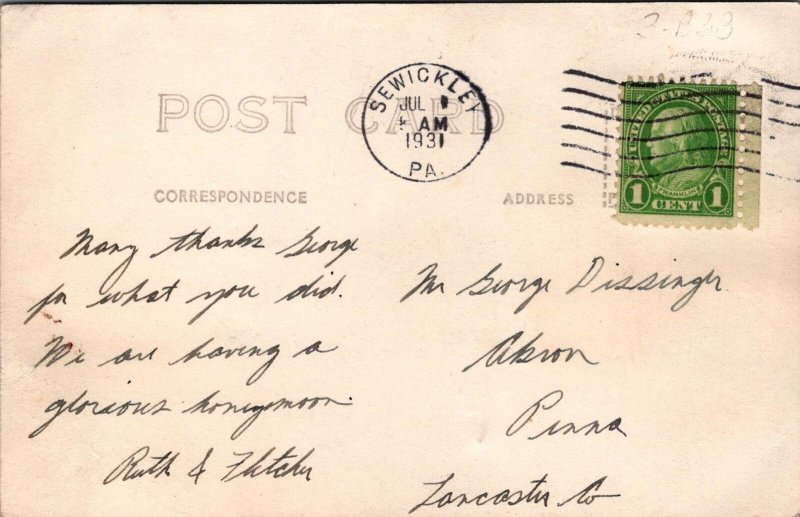 3-B33
POST CARD
SEWICKLEY
JUL
AM
1931
PA.
UNITED STATES POSTAGE
FRANKLIN
1 CENT 1
CORRESPONDENCE
ADDRESS
Many thanks George
for what you did.
We are having a
glorious honeymoon.
Ruth & Fletcher
Mr George Dissinger
Akron
Penna
Lancaster Co